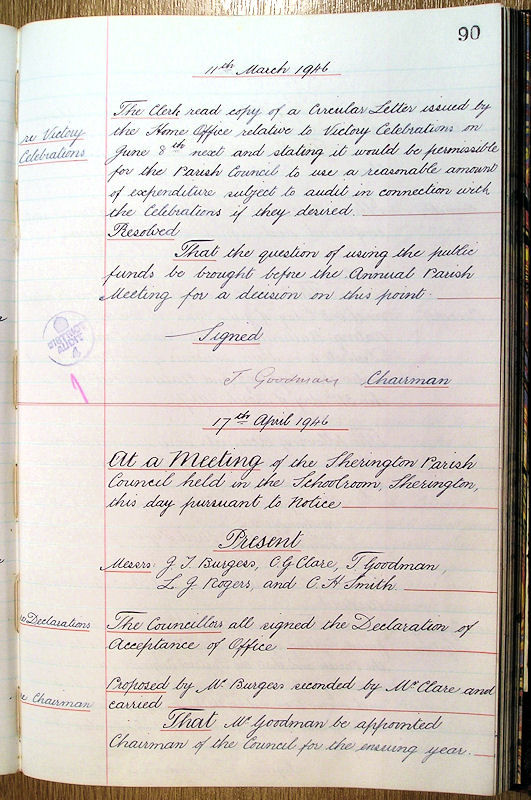 90
11th March 1946
re Victory
Celebrations
The Clerk read copy of a Circular Letter issued by
the Home Office relative to Victory Celebrations on
June 8th next and stating it would be permissible
for the Parish Council to use a reasonable amount
of expenditure subject to audit in connection with
the Celebrations if they desired.
Resolved
That the question of using the public
funds be brought before the Annual Parish
Meeting for a decision on this point.
Signed
DISTRICT
AUDIT
4
T Goodman Chairman
17th April 1946
At a Meeting of the Sherington Parish
Council held in the Schoolroom, Sherington,
this day pursuant to Notice
Present
Messrs: J. T. Burgess, O. G Clare, T. Goodman,
L. J. Rogers, and C. H Smith.
re Declarations
The Councillors all signed the Declaration of
Acceptance of Office
Proposed by Mr Burgess seconded by Mr Clare and
re Chairman
carried
That Mr Goodman be appointed
Chairman of the Council for the ensuing year.